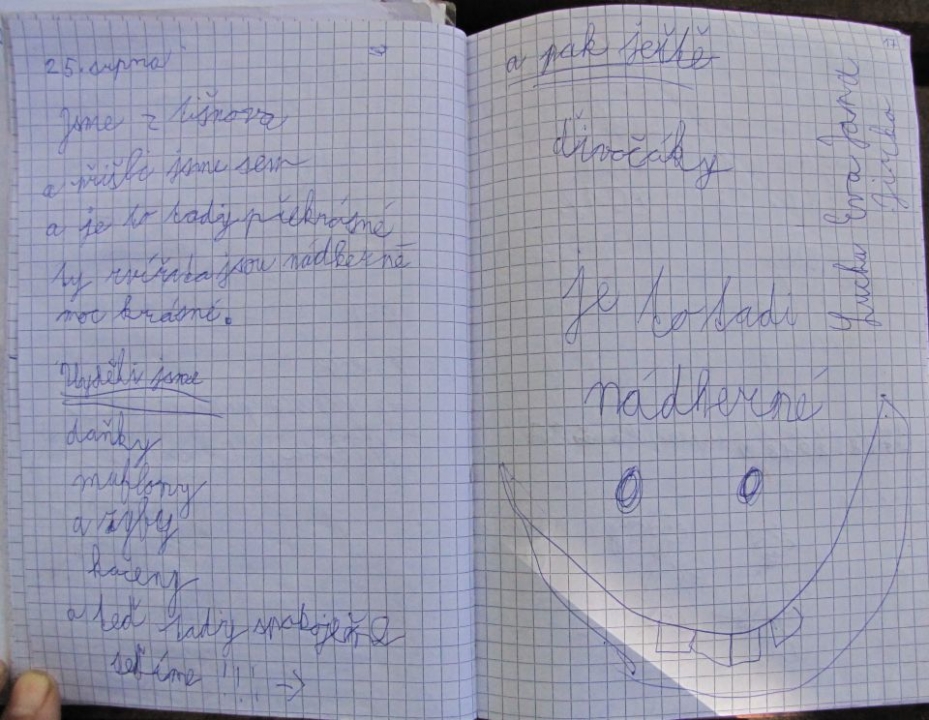 25. srpna
Jsme z Tišnova
a přišli jsme sem
a je to tady překrásné
ty zvířata jsou nádherné
moc krásné.
Vyděli jsme
daňky
muflony
a ryby
kačeny
a teď tady spokojeně
sedíme !!! →
a pak ještě
divočáky
je to tadi
nádherné
Eva Jana
Jirka